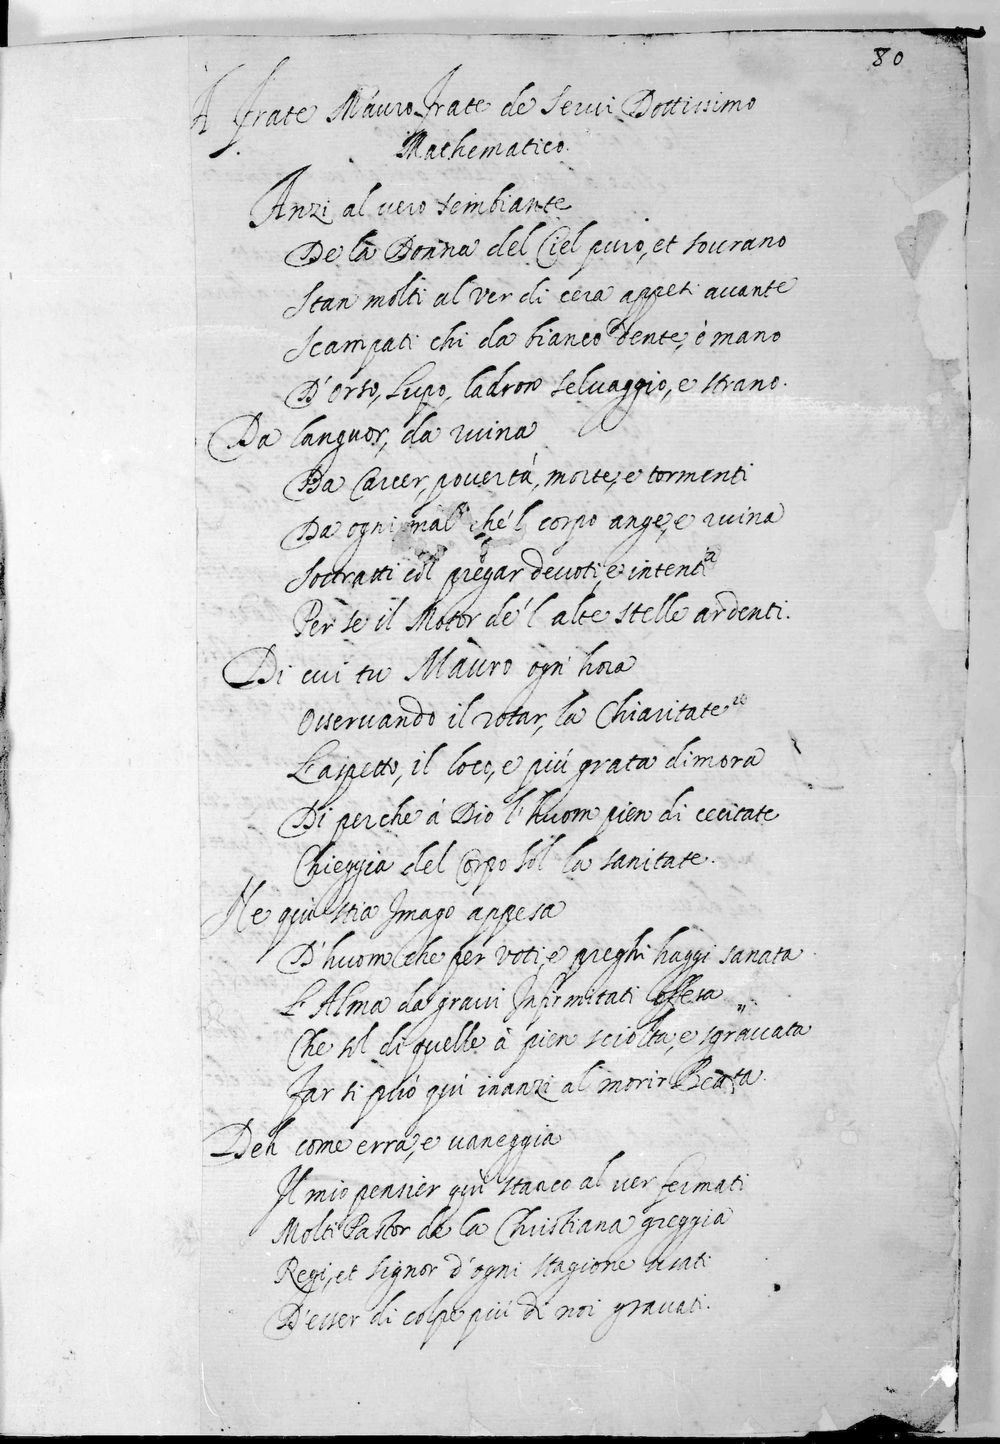 80
A Frate Mauro Frate de Servi Dottissimo
Mathematico.
Anzi al vero sembiante
De la Donna del Ciel puro, et sourano
Stan molti al ver di cera appesi auante
Scampati chi da bianco dente, ò mano
D'orso, Lupo, ladron seluaggio, e strano.
Da languor, da ruina
Da Carcer, pouertà, morte, e tormenti
Da ogni mal ch'é'l corpo ange, e ruina
Sottratti col pregar deuoti, e intenti
Per se il Motor de'l alte stelle ardenti.
Di cui tu Mauro ogn' hora
Osseruando il rotar, la Chiaritate
L'aspetto, il loco, e più grata dimora
Di perche à Dio l'huom pien di cecitate
Chieggia del Corpo sol la sanitate.
Ne qui stia Imago appesa
D'huom che per voti, e preghi haggi sanata
L'Alma da graui Infirmitati offesa
Che sol di quelle à pien sciolta, e sgrauata
Far si può qui inanzi al morir Beata.
Deh come erra, e uaneggia
Il mio pensier quì stanco al uer fermati
Molti Pastor de la Christiana greggia
Regi, et signor d'ogni stagione usati
D'esser di colpe più di noi grauati.